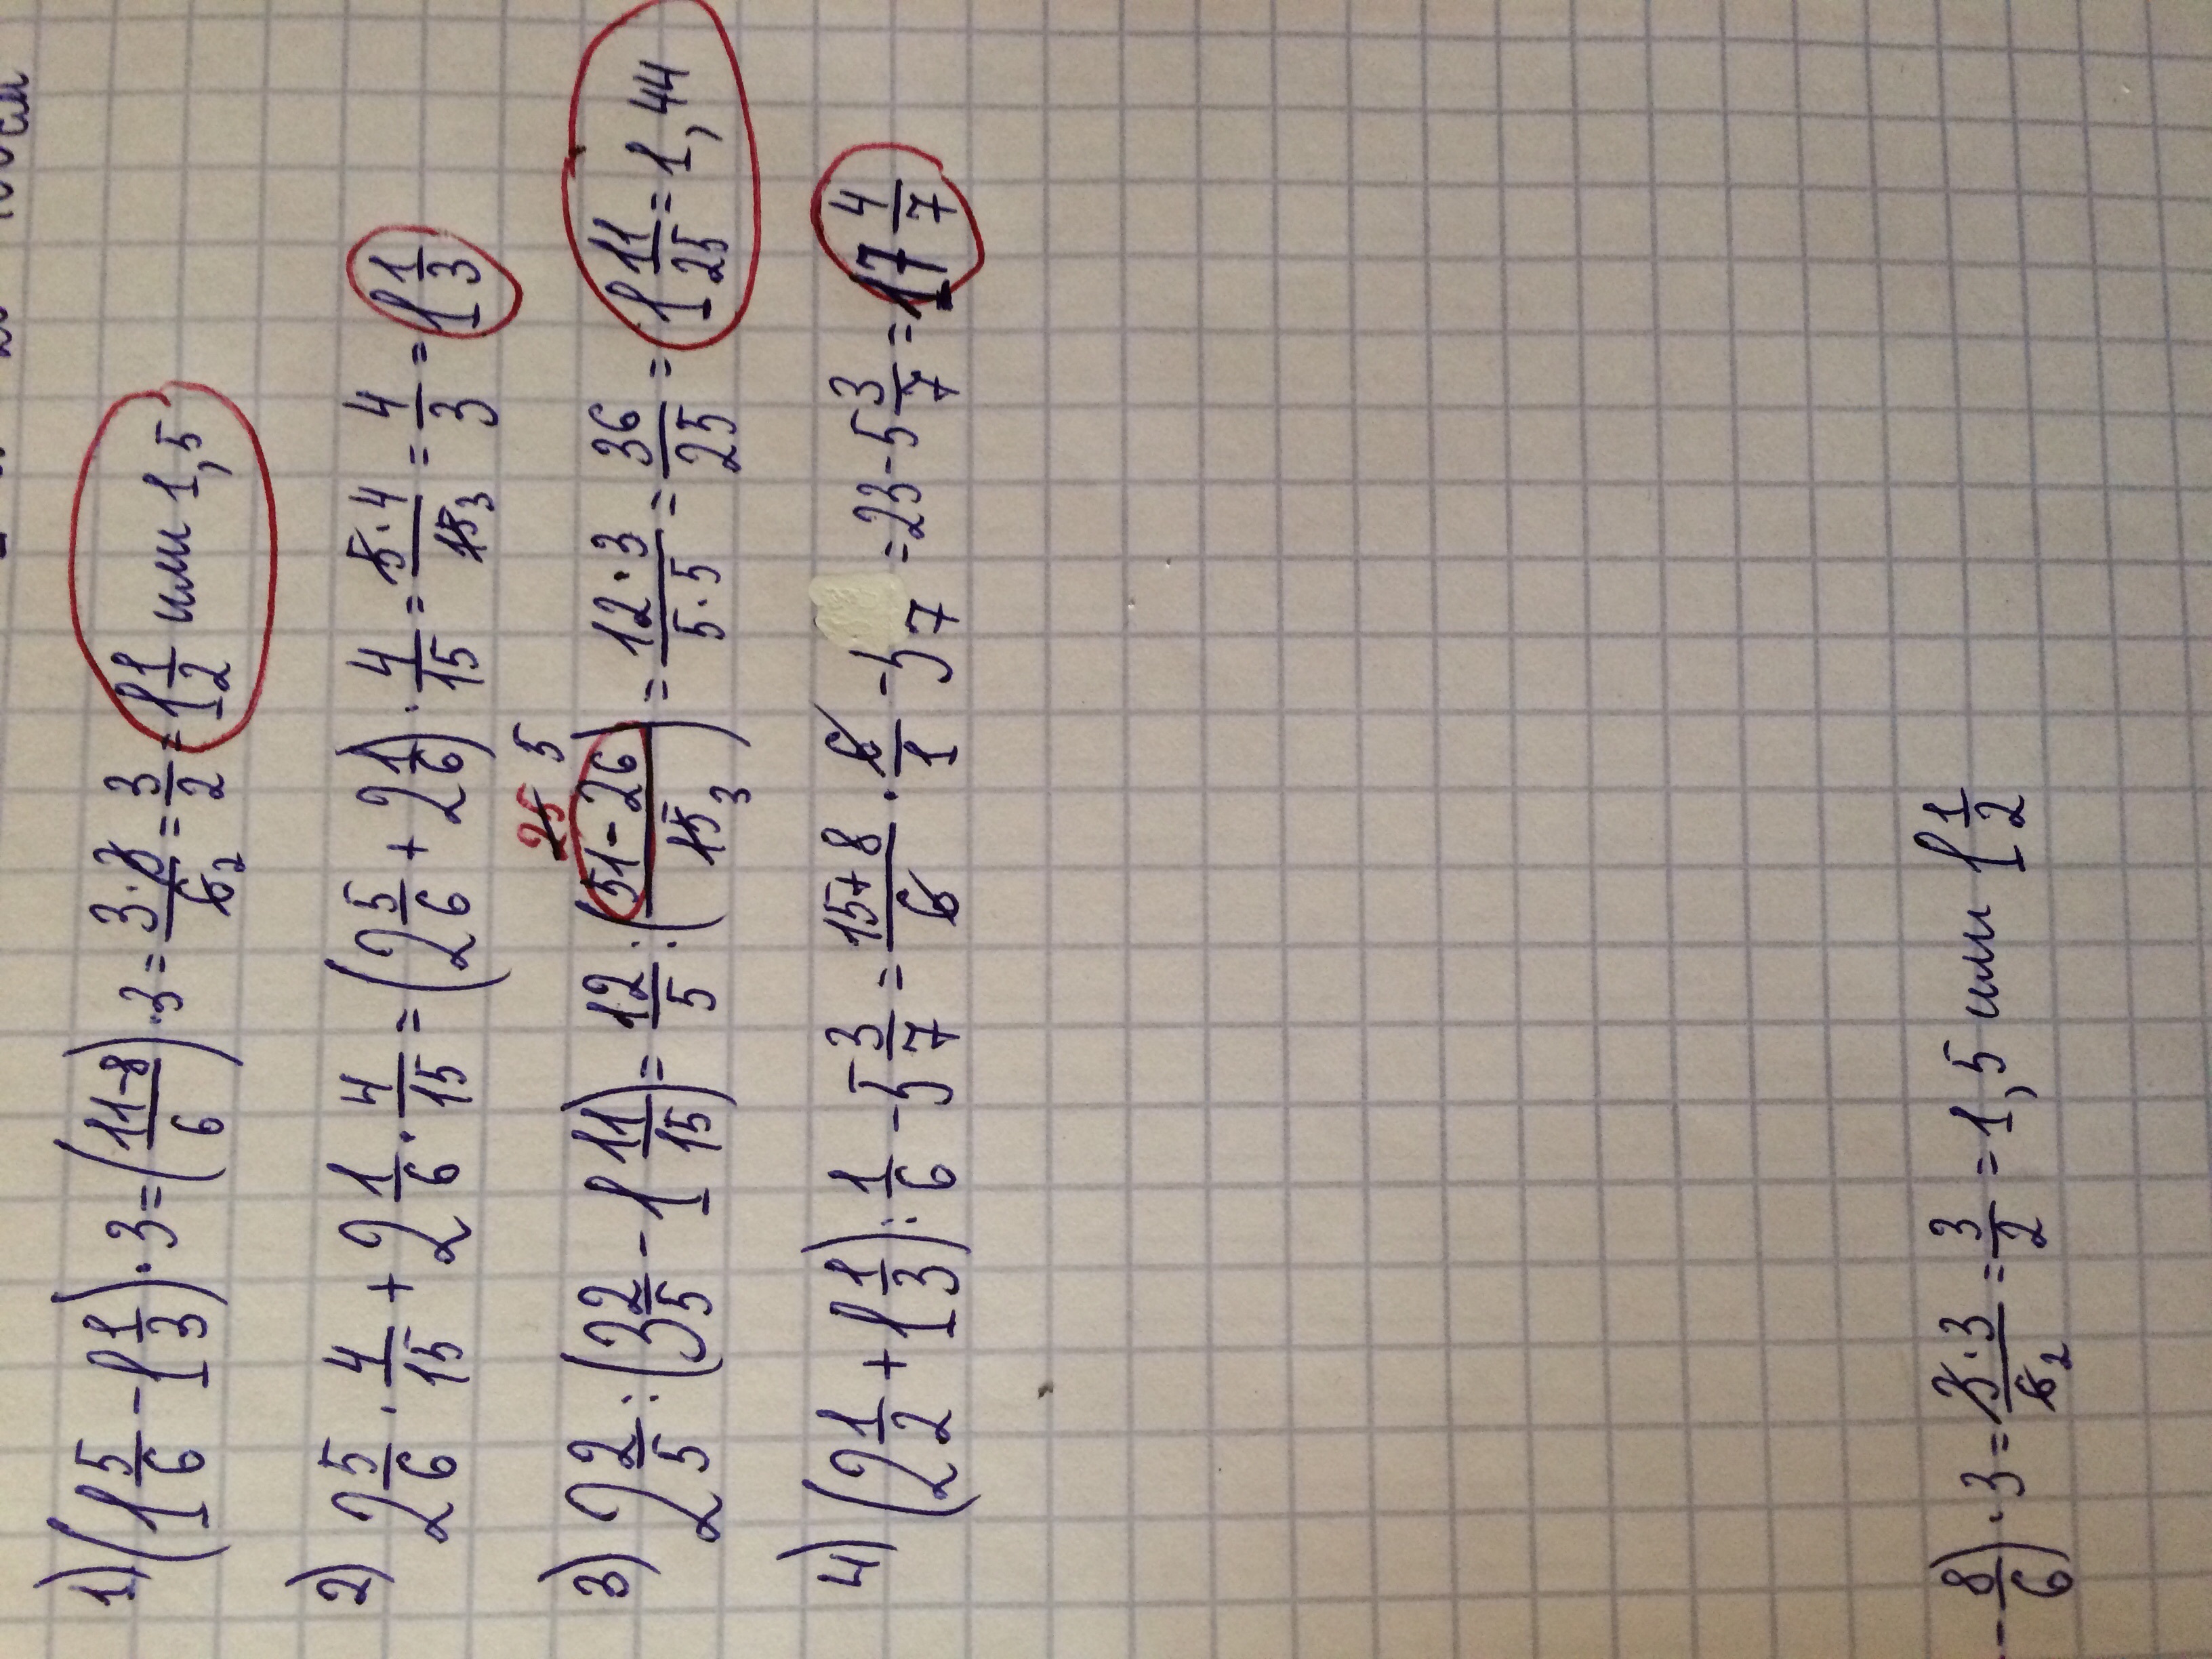 1) (1 5/6 - 1 1/3) · 3 = (11-8/6) · 3 = 3·3/6 2 = 3/2 = 1 1/2 или 1,5
2) 2 5/6 · 4/15 + 2 1/6 · 4/15 = (2 5/6 + 2 1/6) · 4/15 = 5·4/15 3 = 4/3 = 1 1/3
25 5
3) 2 2/5 : (3 2/5 - 1 11/15) = 12/5 : (51-26/15 3) = 12·3/5·5 = 36/25 = 1 11/25 = 1,44
4) (2 1/2 + 1 1/3) : 1/6 - 5 3/7 = 15+8/6 · 6/1 - 5 7 = 23 - 5 3/7 = 17 4/7
- 8/6) · 3 = 3·3/6 2 = 3/2 = 1,5 или 1 1/2